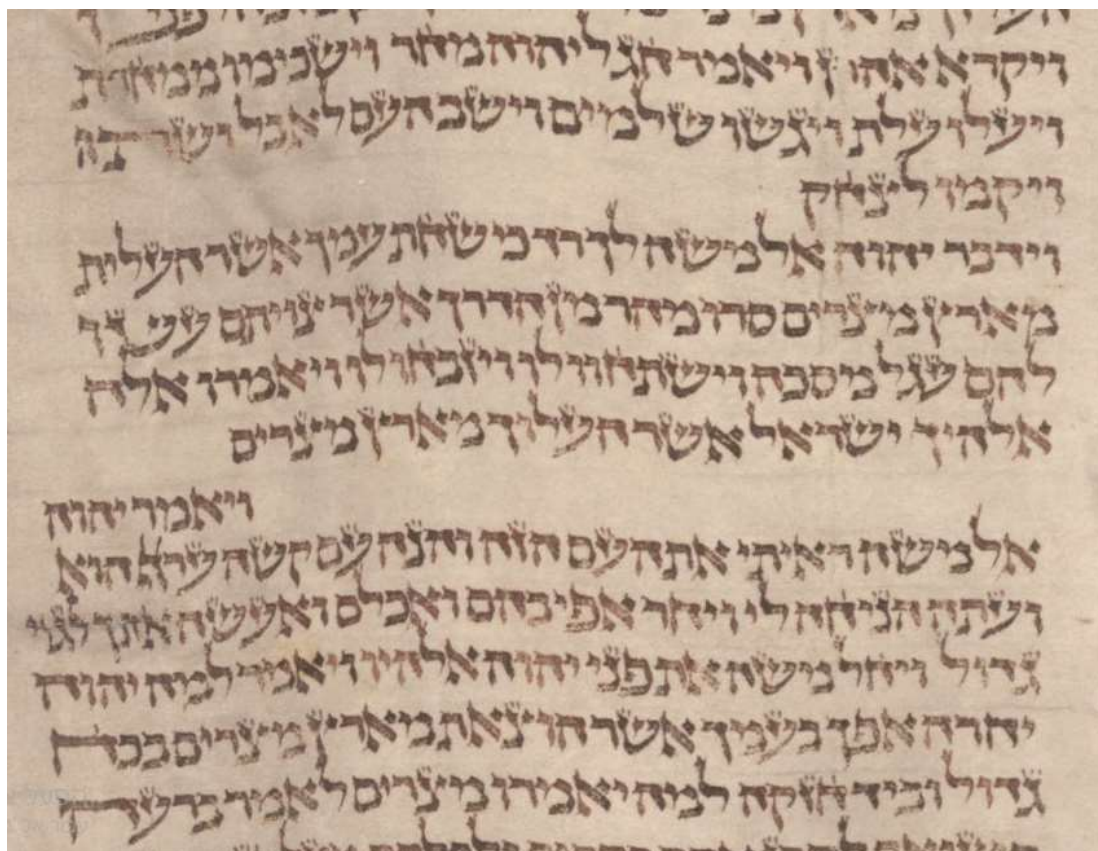 ויקרא אהרן ויאמר חג ליהוה מחר וישכימו ממחרת
ויעלו עלת ויגשו שלמים וישב העם לאכל ושתו
ויקמו לצחק
וידבר יהוה אל משה לך רד כי שחת עמך אשר העלית
מארץ מצרים סרו מהר מן הדרך אשר צויתם עשו
להם עגל מסכה וישתחוו לו ויזבחו לו ויאמרו אלה
אלהיך ישראל אשר העלוך מארץ מצרים
ויאמר יהוה
אל משה ראיתי את העם הזה והנה עם קשה ערף הוא
ועתה הניחה לי ויחר אפי בהם ואכלם ואעשה אותך לגוי
גדול ויחל משה את פני יהוה אלהיו ויאמר למה יהוה
יחרה אפך בעמך אשר הוצאת מארץ מצרים בכח
גדול וביד חזקה למה יאמרו מצרים לאמר ברעה